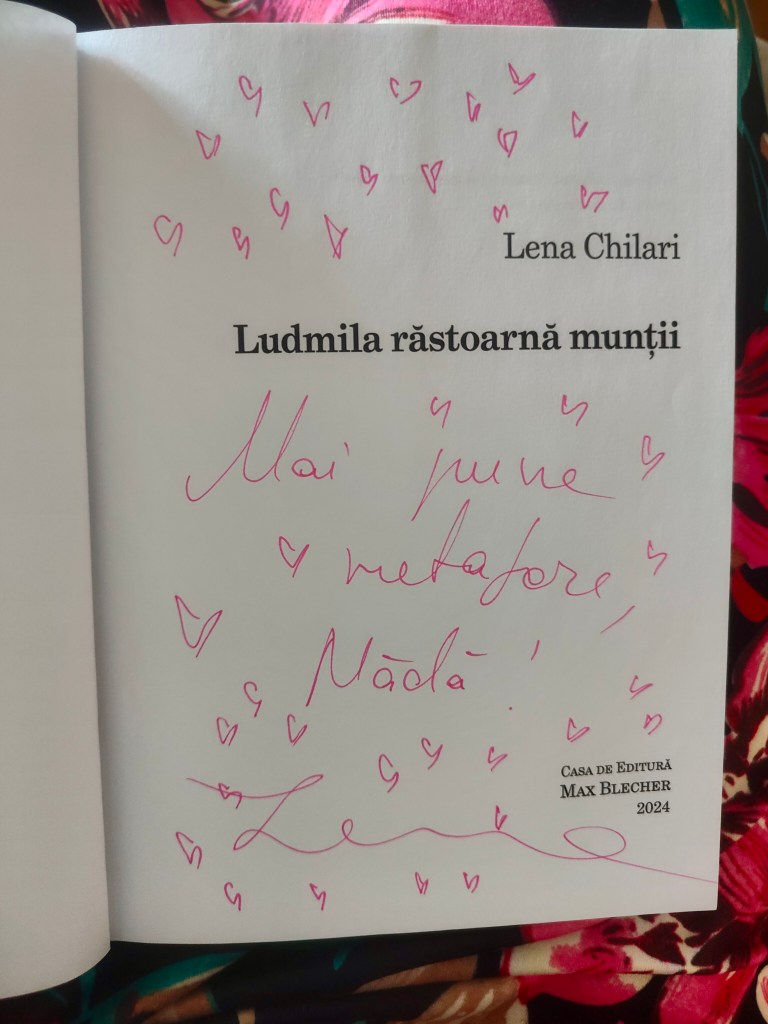 Lena Chilari
Ludmila răstoarnă munții
Mai pune
metafore,
Mădă!
Casa de Editură
Max Blecher
2024
Lena